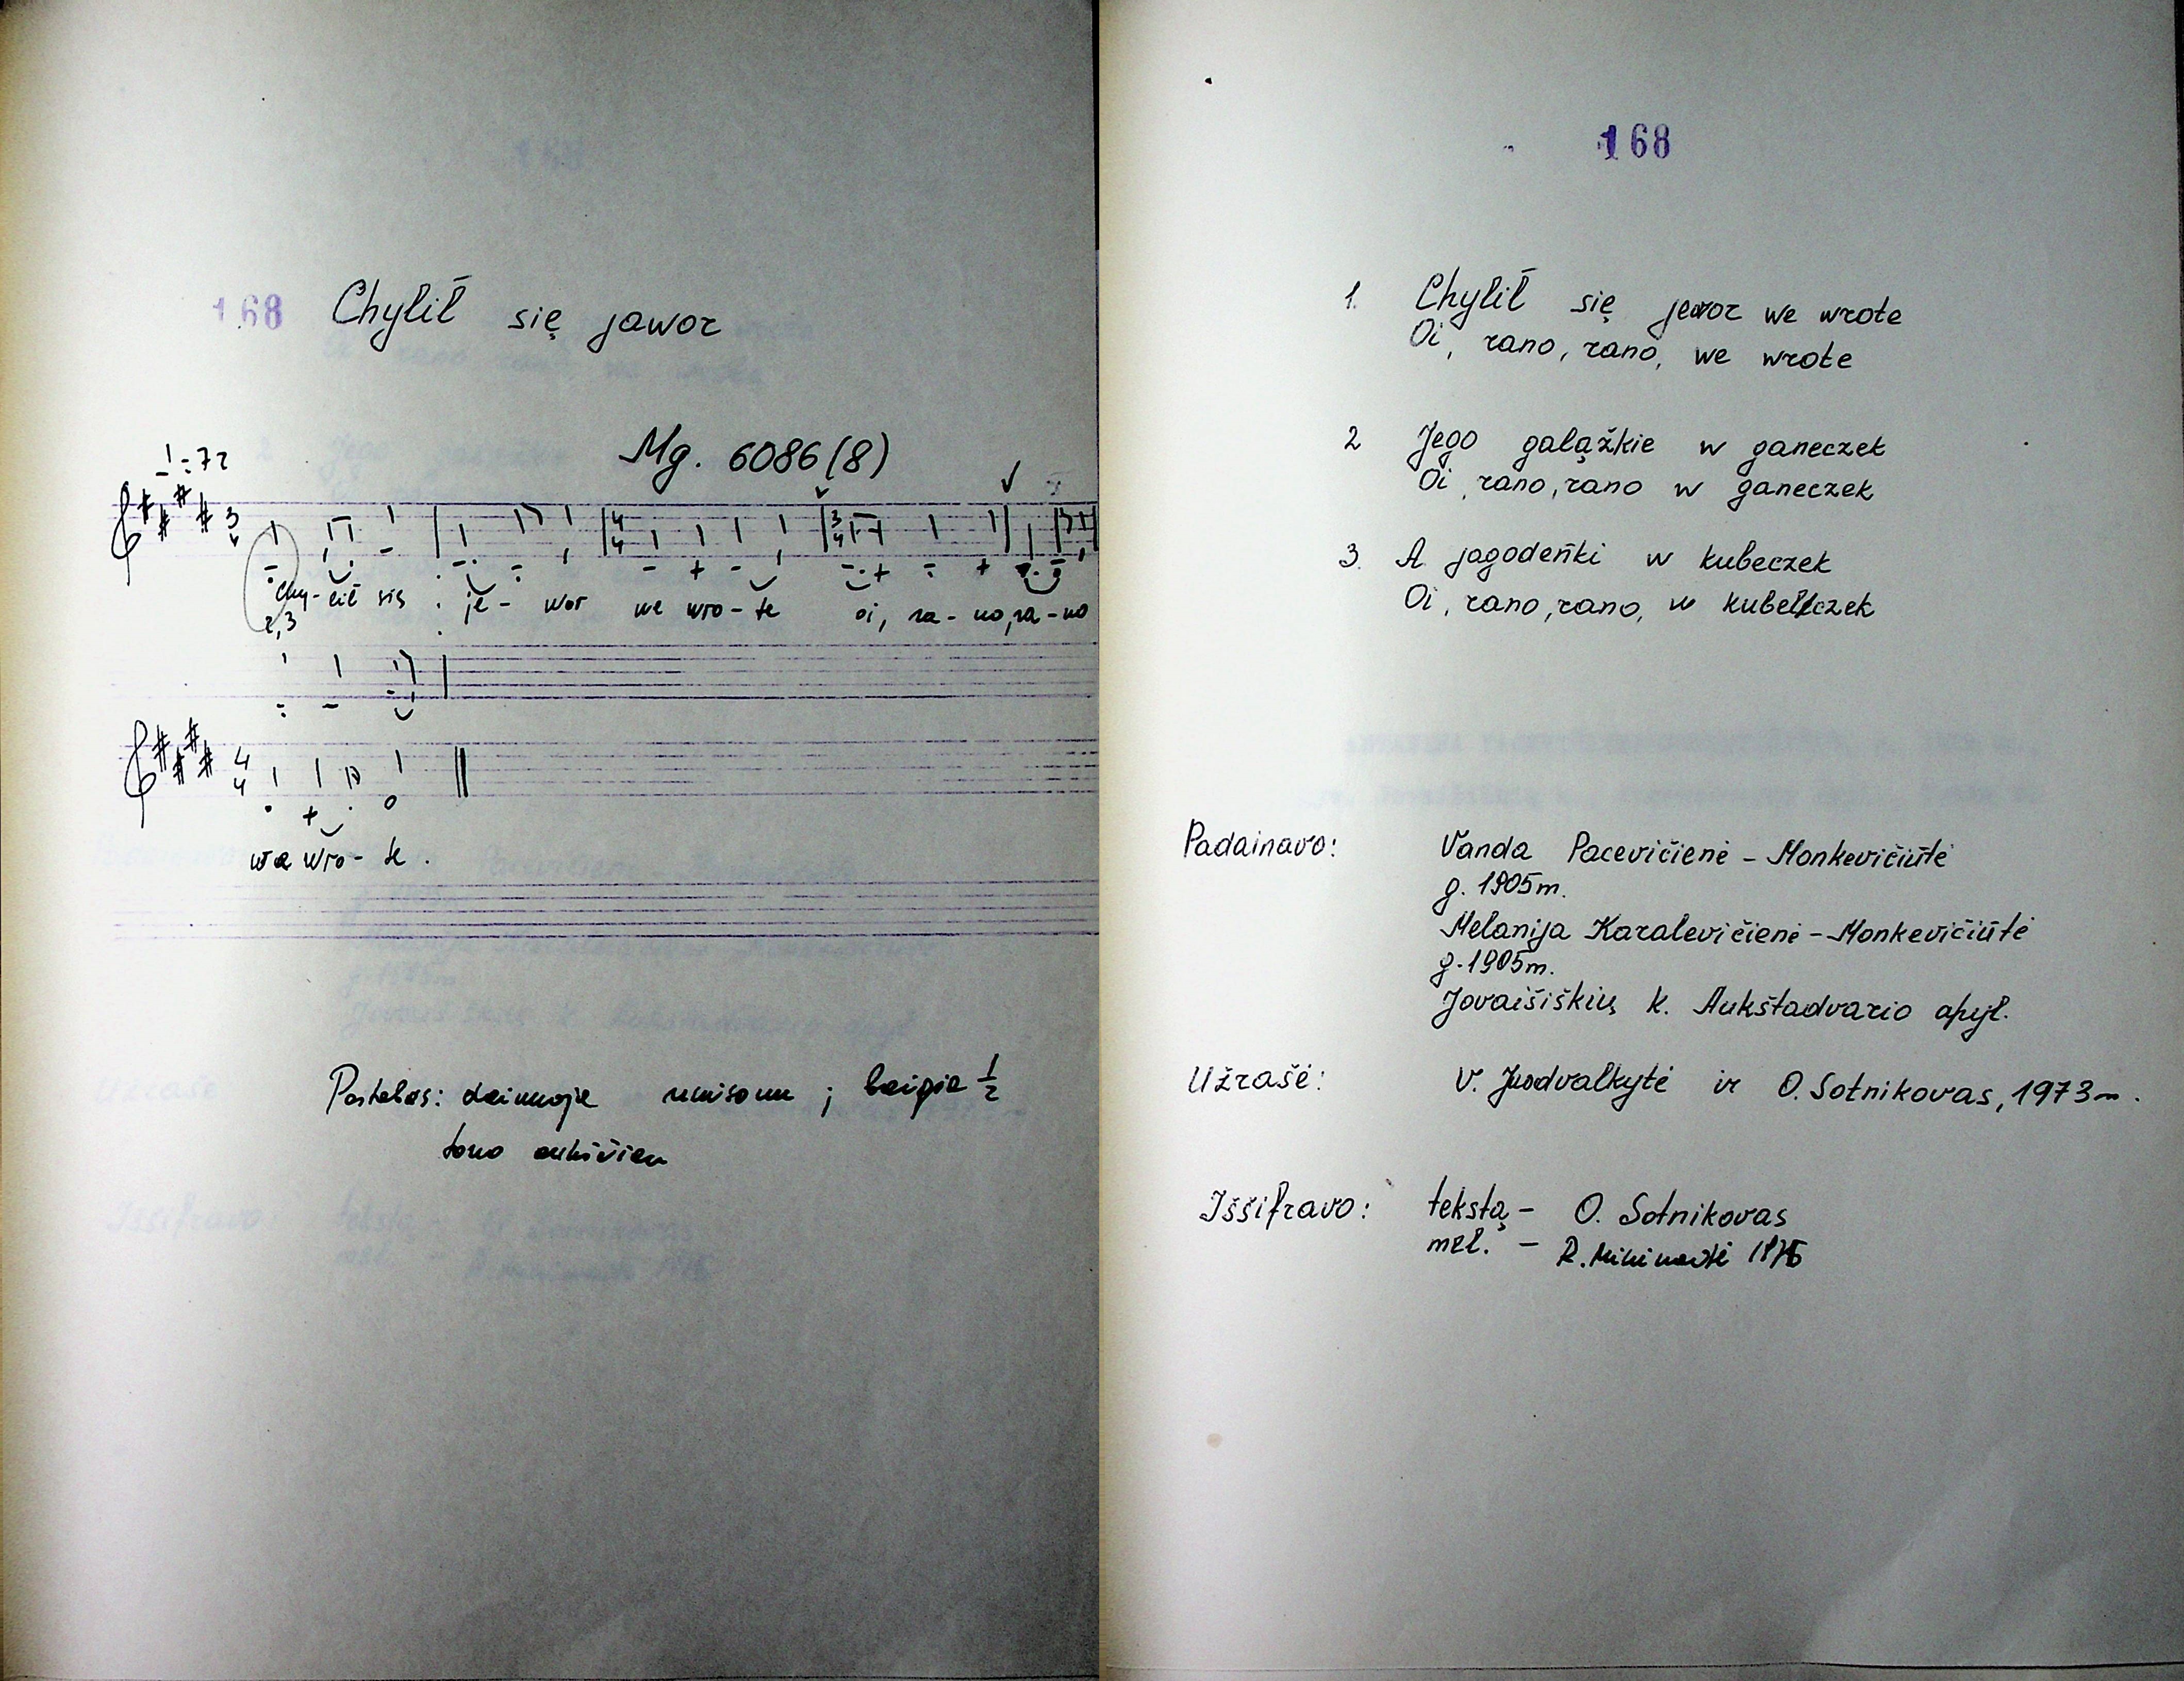 168 Chylił się jawor
Mg. 6086(8)
♩=72
3
4
4
4
3
4
Chy-lił się je-wor we wro-te oi, ra-no, ra-no
2,3
4
4
we wro-te.
Pastabos: dainuoja unisonu; baigia 1/2
tono aukščiau
168
1. Chylił się jewor we wrote
Oi, rano, rano, we wrote
2 Jego galążkie w ganeczek
Oi, rano, rano w ganeczek
3. A jagodeńki w kubeczek
Oi, rano, rano, w kubeczek
Padainavo: Vanda Pacevičienė - Monkevičiūtė
g. 1905m.
Melanija Karalevičienė - Monkevičiūtė
g. 1905m.
Jovaišiškių k. Aukštadvario apyl.
Užrašė: V. Juodvalkytė ir O. Sotnikovas, 1973m.
Iššifravo: tekstą - O. Sotnikovas
mel. - R.